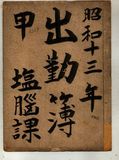 昭和十三年
出勤簿
甲 塩腦課